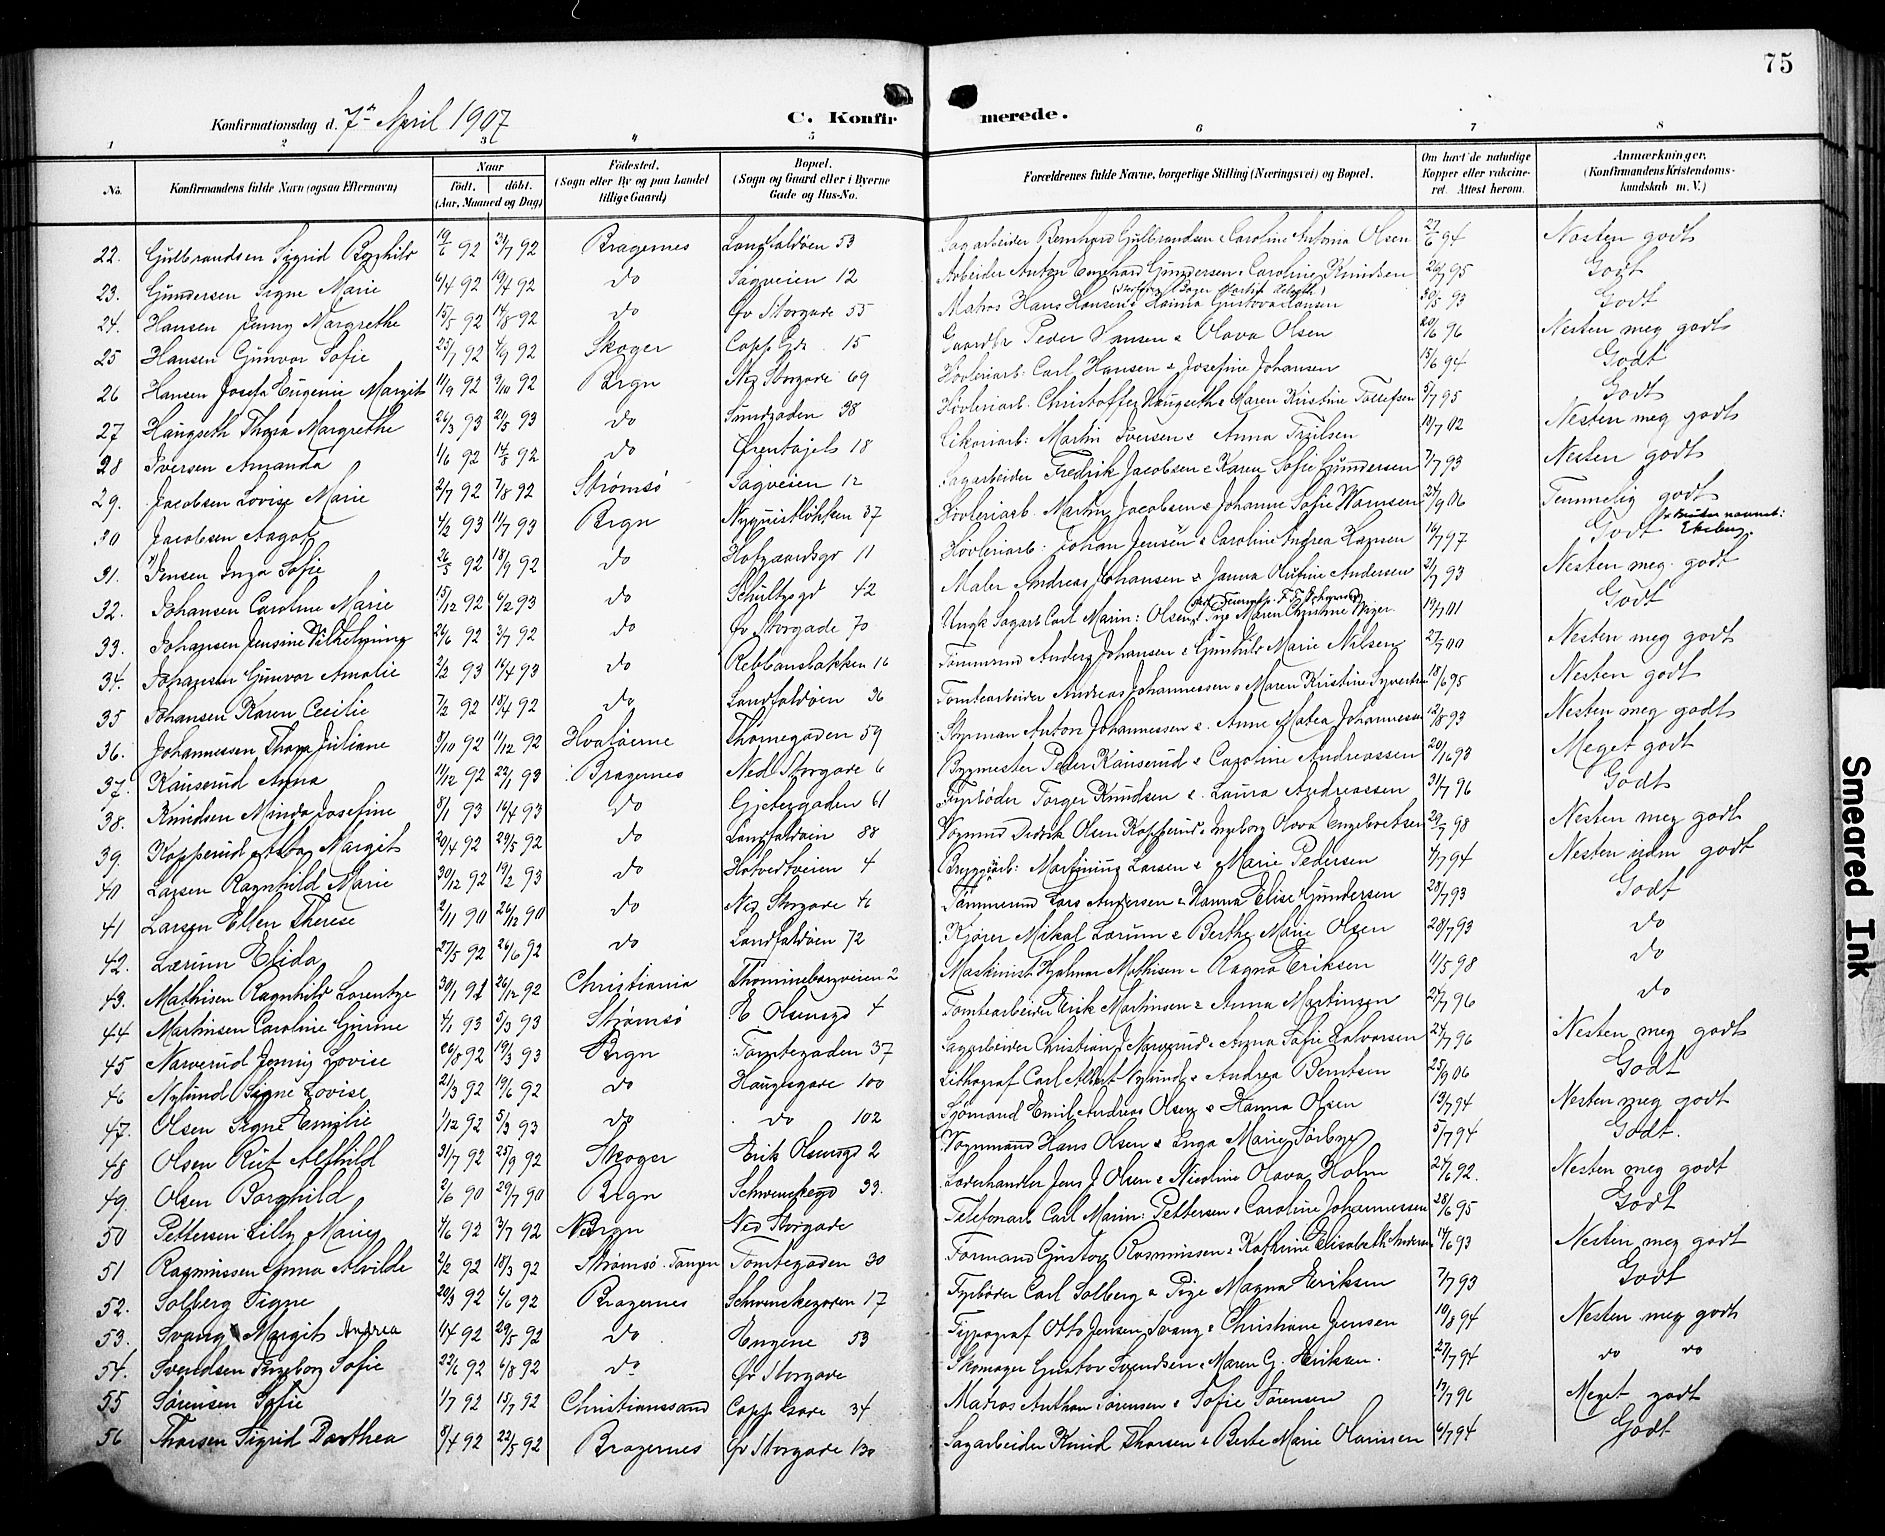 75
Konfirmationsdag d. 7de April 1907
C. Konfirmerede.
1 2 3 4 5 6 7 8
No. Konfirmandens fulde Navn (ogsaa Efternavn) Naar født, døbt. (Aar, Maaned og Dag) Fødested. (Sogn eller By og paa Landet tillige Gaard) Bopæl. (Sogn og Gaard eller i Byerne Gade og Hus-No. Forældrenes fulde Navne, borgerlige Stilling (Næringsvei) og Bopæl. Om havt de naturlige Kopper eller vakcineret. Attest herom. Anmærkninger. (Konfirmandens Kristendomskundskab m. V.)
22. Gulbrandsen Sigrid Ragnhild 19/6 92 31/7 92 Bragernes Landfaldøen 53 Sagarbeider Bernhard Gulbrandsen & Caroline Antonia Olsen 27/6 94 Nesten godt
23. Gundersen Signe Marie 6/4 92 19/4 92 do Sagveien 12 Arbeider Anton Engehard Gundersen & Caroline Knudsen 26/7 95 Godt
24. Hansen Jenny Margrethe 15/5 92 14/8 92 do Øv Storgade 55 Matros Hans Hansen & Hanna Gustava Hansen 30/5 93 Godt
25 Hansen Gunvor Sofie 25/7 92 4/9 92 Skoger Capp. Gd. 15 Gaardbr Peder Hansen & Olava Olsen 20/6 96 Nesten meg godt
26 Hansen Josefa Eugenie Margit 11/9 92 9/10 92 Brgn Ned Storgade 69 Høvleriarb: Carl Hansen & Josefine Johansen 15/6 94 Godt
27 Haugseth Thora Margrethe 26/3 93 21/5 93 do Sundgaden 38 Høvleriarb. Christoffer Haugseth & Maren Kristine Tollefsen 5/7 95 Godt
28 Iversen Amanda 1/6 92 14/8 92 do Ørentajet 18 Martin Iversen & Anna 19/7 02 Nesten meg godt
29. Jacobsen Lovise Marie 2/7 92 7/8 92 Strømsø Sagveien 12 Sagarbeider Fredrik Jacobsen & Karen Sofie Gundersen 7/7 93 Nesten godt
30 Jacobsen Aagot 4/2 93 11/7 93 Brgn Nyquistløkken 37 Høvleriarb. Martin Jacobsen & Johanne Sofie 24/9 06 Temmelig godt
31. Jensen Inga Sofie 26/3 92 18/9 92 do Hofgaardsgd 11 Høvleriarb: Johan Jensen & Caroline Andrea Hansen 16/7 97 Godt Ekeberg.
32. Johansen Caroline Marie 15/12 92 6/2 93 do Schultzgd 42 Maler Andreas Johansen & Janna Olufine Andersen 21/7 93 Nesten meg. godt
33. Johansen Jensine Vilhelmine 26/6 92 3/7 92 do Øv Storgade 70 Ungk Sagarb Carl Marin: Olsen & Pige Maren Christine 19/7 01 Godt
34. Johansen Gunvor Amalie 2/2 93 16/4 93 do Rebbansbakken 16 Tømmermd Anders Johansen & Gunhild Marie Nilsen 27/7 00 Nesten meg godt
35 Johansen Karen Cecilie 7/2 92 18/4 92 do Landfaldøen 36 Tomtearbeider Andreas Johannessen & Maren Kristine 18/6 95 Nesten godt
36. Johannessen Thora Juliane 8/10 92 11/12 92 Hvaløerne Thornegaden 59 Styrman Anton Johannessen & Anne Matea Johannessen 12/8 93 Nesten meg godt
37. Kauserud Anna 11/12 92 22/1 93 Bragernes Ned Storgade 6 Bygmester Peder Kauserud & Caroline Andreassen 20/6 93 Meget godt
38. Knudsen Minda Josefine 8/1 93 16/4 93 do Gjetergaden 61 Fyrbøder Torger Knudsen & Laura Andreassen 31/7 96 Godt
39. Kopperud Asta Margit 20/4 92 29/5 92 do Landfaldøen 88 Vognmd Didrik Olsen Kopperud & Ingeborg Olava Engebretsen 29/7 98 Nesten meg godt
40 Larsen Ragnhild Marie 30/12 92 19/2 93 do Hotvedtveien 4 Bryggarb: Martinius Larsen & Marie Pedersen 4/7 94 Nesten udm godt
41 Larsen Ellen Therese 2/11 90 26/12 90 do Ned Storgade 46 Tømmermd Lars Andersen & Hanna Elise Gundersen 28/7 93 Godt
42. Lærum Elida 27/5 92 26/6 92 do Landfaldøen 72 Kjører Mikal Lærum & Berthe Marie Olsen 28/7 93 do
43. Mathisen Ragnhild Lorentze 30/1 92 26/12 92 Christiania Thominebergveien 2 Maskinist Hjalmar Mathisen & Ragna Eriksen 11/5 98 do
44 Martinsen Caroline Gurine 4/1 93 5/3 93 Strømsø E Olsensgd 4 Tomtearbeider Erik Martinsen & Anna Martinsen 24/7 96 do
45 Narverud Jenny Lovise 26/8 92 19/3 93 Brgn Tomtegaden 37 Sagarbeider Christian J Narverud & Anna Sofie Halvorsen 24/7 96 Nesten meg godt
46 Nylund Signe Lovise 21/3 92 19/6 92 do Haugesgade 100 Lithograf Carl Albert Nylund & Andrea Berntsen 25/9 06 Godt
47. Olsen Signe Emilie 1/12 92 5/3 93 do do 102 Sjømand Emil Andreas Olsen & Hanna Olsen 13/7 94 Nesten meg godt
48 Olsen Rut Alfhild 31/7 92 25/9 92 Skoger Erik Olsensgd 2 Vognmand Hans Olsen & Inga Marie Sørbye 5/7 94 Godt.
49. Olsen Borghild 2/6 90 29/7 90 Brgn Schwenckegd 33. Læderhandler Jens J Olsen & Nicoline Olava Holm 24/6 92. Nesten meg godt
50 Pettersen Lilly Marie 4/6 92 3/7 92 Brgn Ned Storgade Telefonarb Carl Marin: Pettersen & Caroline Johannessen 28/6 95 Godt
51 Rasmussen Anna Alvilde 2/2 92 18/3 92 Strømsø Tangen Tomtegaden 30 Formand Gustav Rasmussen & Kathrine Elisabeth Andersen 14/6 93 Nesten meg godt
52. Solberg Signe 20/3 92 6/6 92 Bragernes Schwenckegaden 17 Fyrbøder Carl Solberg & Pige Magna Eriksen 7/7 93 Godt
53. Svang Margit Andrea 4/4 92 29/5 92 do Engene 53 Typograf Otto Jensen Svang & Christiane Jensen 10/8 94 Nesten meg godt
54. Svendsen Ingeborg Sofie 22/6 92 6/8 92 do Øv Storgade Skomager Gustav Svendsen & Maren G. Eriksen. 27/7 94 do do
55 Sørensen Sofie 1/7 92 15/7 92 Christianssand Capp. Gade 34 Matros Anthon Sørensen & Sofie Sørensen 13/7 96 Meget godt
56 Thorsen Sigrid Dorthea 8/4 92 22/5 92 Bragernes Øv Storgade 130 Sagarbeider Knud Thorsen & Berte Marie Olarissen 6/7 94 Godt
Smeared Ink